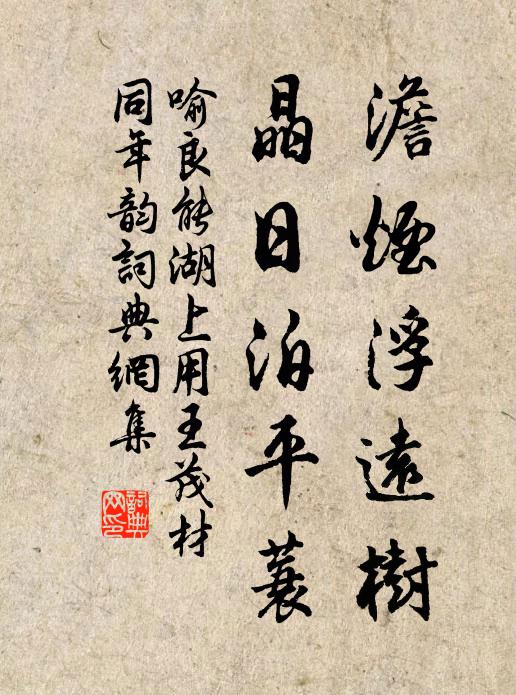 澹煙浮遠樹
晶日泊平蓑
喻良能湖上用王茂材
同年韵詞典網集
詞典网印